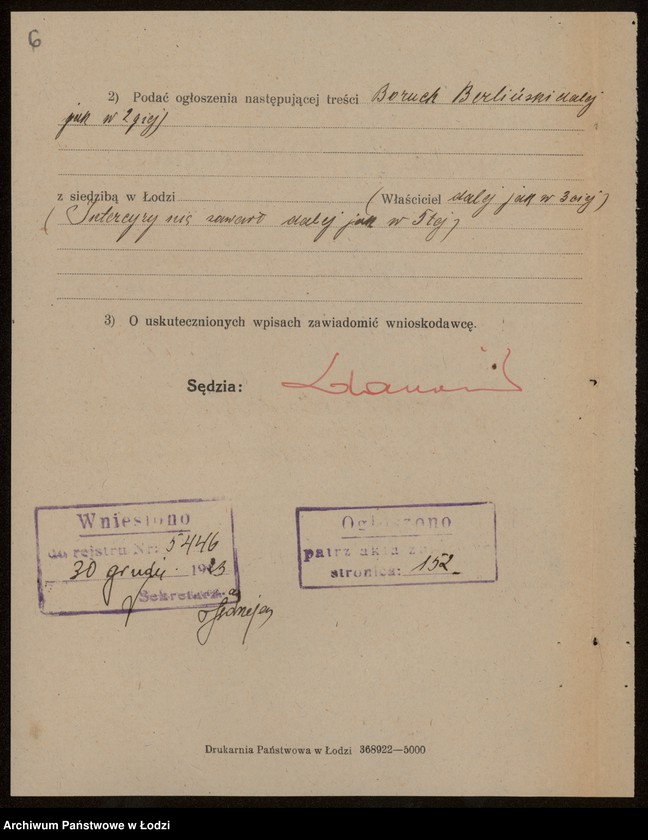 6
2) Podać ogłoszenia następującej treści Boruch Berliński dalej
jak w 2giej)
z siedzibą w Łodzi (Właściciel dalej jak w 3ciej)
(Intercyzy nie zawarł dalej jak w 5tej)
3) O uskutecznionych wpisach zawiadomić wnioskodawcę.
Sędzia:
Wniesiono
do rejstru Nr: 5446
30 grudn. 1923
Sekretarz:
Ogłoszono
patrz akta
stronica: 152
Drukarnia Państwowa w Łodzi 368922—5000
Archiwum Państwowe w Łodzi